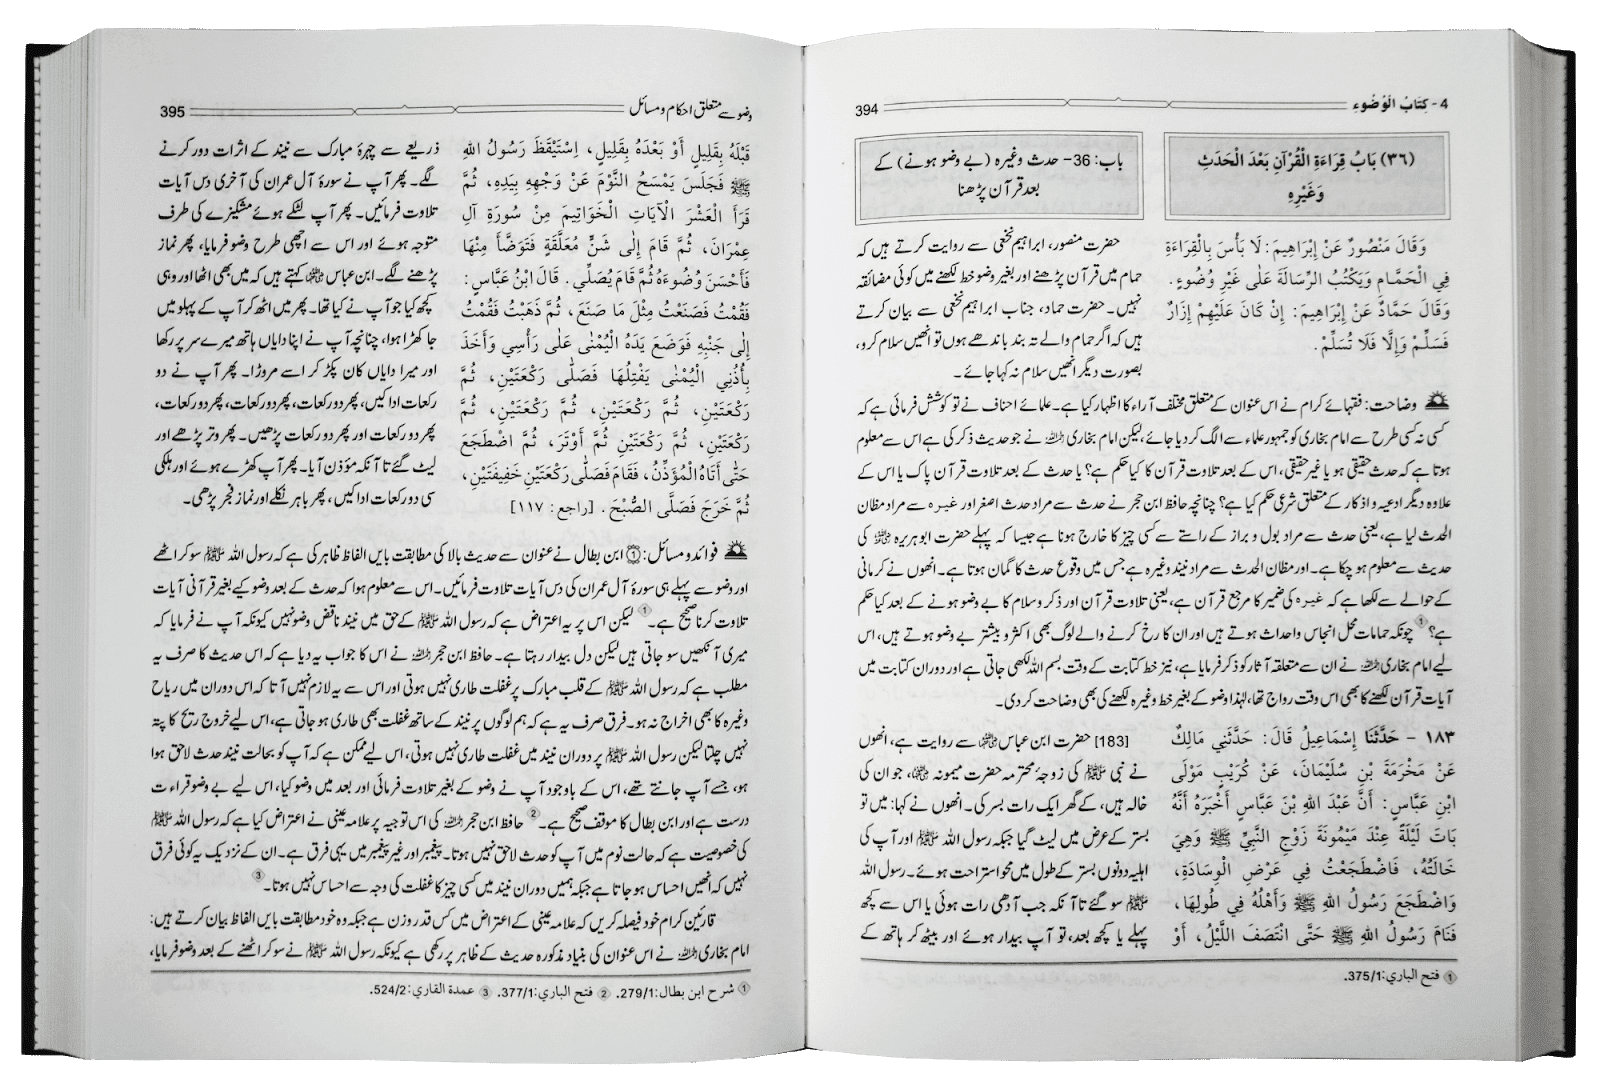 4- كِتَابُ الْوُضُوء 394
(٣٦) بَابُ قِرَاءَةِ الْقُرْآنِ بَعْدَ الْحَدَثِ
وَغَيْرِهِ
باب: 36- حدث وغیرہ (بے وضو ہونے) کے
بعد قرآن پڑھنا
وَقَالَ مَنْصُورٌ عَنْ إِبْرَاهِيمَ: لَا بَأْسَ بِالْقِرَاءَةِ
فِي الْحَمَّامِ وَيَكْتُبُ الرِّسَالَةَ عَلٰى غَيْرِ وُضُوءٍ.
وَقَالَ حَمَّادٌ عَنْ إِبْرَاهِيمَ: إِنْ كَانَ عَلَيْهِمْ إِزَارٌ
فَسَلِّمْ وَإِلَّا فَلَا تُسَلِّمْ.
حضرت منصور، ابراہیم نخعی سے روایت کرتے ہیں کہ
حمام میں قرآن پڑھنے اور بغیر وضو خط لکھنے میں کوئی مضائقہ
نہیں۔ حضرت حماد، جناب ابراہیم نخعی سے بیان کرتے
ہیں کہ اگر حمام والے تہ بند باندھے ہوں تو انھیں سلام کرو،
بصورت دیگر انھیں سلام نہ کہا جائے۔
وضاحت: فقہائے کرام نے اس عنوان کے متعلق مختلف آراء کا اظہار کیا ہے۔ علمائے احناف نے تو کوشش فرمائی ہے کہ
کسی نہ کسی طرح سے امام بخاری کو جمہور علماء سے الگ کر دیا جائے، لیکن امام بخاری رحمہ اللہ نے جو حدیث ذکر کی ہے اس سے معلوم
ہوتا ہے کہ حدث حقیقی ہو یا غیر حقیقی، اس کے بعد تلاوت قرآن کا کیا حکم ہے؟ یا حدث کے بعد تلاوت قرآن پاک یا اس کے
علاوہ دیگر ادعیہ و اذکار کے متعلق شرعی حکم کیا ہے؟ چنانچہ حافظ ابن حجر نے حدث سے مراد حدث اصغر اور غیرہ سے مراد مظان
الحدث لیا ہے، یعنی حدث سے مراد بول و براز کے راستے سے کسی چیز کا خارج ہونا ہے جیسا کہ پہلے حضرت ابوہریرہ رضی اللہ عنہ کی
حدیث سے معلوم ہو چکا ہے۔ اور مظان الحدث سے مراد نیند وغیرہ ہے جس میں وقوع حدث کا گمان ہوتا ہے۔ انھوں نے کرمانی
کے حوالے سے لکھا ہے کہ غیرہ کی ضمیر کا مرجع قرآن ہے، یعنی تلاوت قرآن اور ذکر و سلام کا بے وضو ہونے کے بعد کیا حکم
ہے؟① چونکہ حمامات محل انجاس و احداث ہوتے ہیں اور ان کا رخ کرنے والے لوگ بھی اکثر و بیشتر بے وضو ہوتے ہیں، اس
لیے امام بخاری رحمہ اللہ نے ان سے متعلقہ آثار کو ذکر فرمایا ہے، نیز خط کتابت کے وقت بسم اللہ لکھی جاتی ہے اور دوران کتابت میں
آیات قرآن لکھنے کا بھی اس وقت رواج تھا، لہٰذا وضو کے بغیر خط وغیرہ لکھنے کی بھی وضاحت کر دی۔
١٨٣ - حَدَّثَنَا إِسْمَاعِيلُ قَالَ: حَدَّثَنِي مَالِكٌ
عَنْ مَخْرَمَةَ بْنِ سُلَيْمَانَ، عَنْ كُرَيْبٍ مَوْلَى
ابْنِ عَبَّاسٍ: أَنَّ عَبْدَ اللهِ بْنَ عَبَّاسٍ أَخْبَرَهُ أَنَّهُ
بَاتَ لَيْلَةً عِنْدَ مَيْمُونَةَ زَوْجِ النَّبِيِّ ﷺ وَهِيَ
خَالَتُهُ، فَاضْطَجَعْتُ فِي عَرْضِ الْوِسَادَةِ،
وَاضْطَجَعَ رَسُولُ اللهِ ﷺ وَأَهْلُهُ فِي طُولِهَا،
فَنَامَ رَسُولُ اللهِ ﷺ حَتَّى انْتَصَفَ اللَّيْلُ، أَوْ
[183] حضرت ابن عباس رضی اللہ عنہما سے روایت ہے، انھوں
نے نبی ﷺ کی زوجۂ محترمہ حضرت میمونہ رضی اللہ عنہا، جو ان کی
خالہ ہیں، کے گھر ایک رات بسر کی۔ انھوں نے کہا: میں تو
بستر کے عرض میں لیٹ گیا جبکہ رسول اللہ ﷺ اور آپ کی
اہلیہ دونوں بستر کے طول میں محو استراحت ہوئے۔ رسول اللہ
ﷺ سو گئے تا آنکہ جب آدھی رات ہوئی یا اس سے کچھ
پہلے یا کچھ بعد، تو آپ بیدار ہوئے اور بیٹھ کر ہاتھ کے
① فتح الباري: 375/1.
وضو سے متعلق احکام و مسائل 395
قَبْلَهُ بِقَلِيلٍ أَوْ بَعْدَهُ بِقَلِيلٍ، اِسْتَيْقَظَ رَسُولُ اللهِ
ﷺ فَجَلَسَ يَمْسَحُ النَّوْمَ عَنْ وَجْهِهِ بِيَدِهِ، ثُمَّ
قَرَأَ الْعَشْرَ الْآيَاتِ الْخَوَاتِيمَ مِنْ سُورَةِ آلِ
عِمْرَانَ، ثُمَّ قَامَ إِلٰى شَنٍّ مُعَلَّقَةٍ فَتَوَضَّأَ مِنْهَا
فَأَحْسَنَ وُضُوءَهُ ثُمَّ قَامَ يُصَلِّي. قَالَ ابْنُ عَبَّاسٍ:
فَقُمْتُ فَصَنَعْتُ مِثْلَ مَا صَنَعَ، ثُمَّ ذَهَبْتُ فَقُمْتُ
إِلٰى جَنْبِهِ فَوَضَعَ يَدَهُ الْيُمْنٰى عَلٰى رَأْسِي وَأَخَذَ
بِأُذُنِي الْيُمْنٰى يَفْتِلُهَا فَصَلّٰى رَكْعَتَيْنِ، ثُمَّ
رَكْعَتَيْنِ، ثُمَّ رَكْعَتَيْنِ، ثُمَّ رَكْعَتَيْنِ، ثُمَّ
رَكْعَتَيْنِ، ثُمَّ رَكْعَتَيْنِ ثُمَّ أَوْتَرَ، ثُمَّ اضْطَجَعَ
حَتّٰى أَتَاهُ الْمُؤَذِّنُ، فَقَامَ فَصَلّٰى رَكْعَتَيْنِ خَفِيفَتَيْنِ،
ثُمَّ خَرَجَ فَصَلَّى الصُّبْحَ. [راجع: ١١٧]
ذریعے سے چہرۂ مبارک سے نیند کے اثرات دور کرنے
لگے۔ پھر آپ نے سورۂ آل عمران کی آخری دس آیات
تلاوت فرمائیں۔ پھر آپ لٹکے ہوئے مشکیزے کی طرف
متوجہ ہوئے اور اس سے اچھی طرح وضو فرمایا، پھر نماز
پڑھنے لگے۔ ابن عباس رضی اللہ عنہما کہتے ہیں کہ میں بھی اٹھا اور وہی
کچھ کیا جو آپ نے کیا تھا۔ پھر میں اٹھ کر آپ کے پہلو میں
جا کھڑا ہوا، چنانچہ آپ نے اپنا دایاں ہاتھ میرے سر پر رکھا
اور میرا دایاں کان پکڑ کر اسے مروڑا۔ پھر آپ نے دو
رکعات ادا کیں، پھر دو رکعات، پھر دو رکعات، پھر دو رکعات،
پھر دو رکعات اور پھر دو رکعات پڑھیں۔ پھر وتر پڑھے اور
لیٹ گئے تا آنکہ مؤذن آیا۔ پھر آپ کھڑے ہوئے اور ہلکی
سی دو رکعات ادا کیں، پھر باہر نکلے اور نماز فجر پڑھی۔
فوائد و مسائل: ① ابن بطال نے عنوان سے حدیث بالا کی مطابقت بایں الفاظ ظاہر کی ہے کہ رسول اللہ ﷺ سو کر اٹھے
اور وضو سے پہلے ہی سورۂ آل عمران کی دس آیات تلاوت فرمائیں۔ اس سے معلوم ہوا کہ حدث کے بعد وضو کیے بغیر قرآنی آیات
تلاوت کرنا صحیح ہے۔① لیکن اس پر یہ اعتراض ہے کہ رسول اللہ ﷺ کے حق میں نیند ناقض وضو نہیں کیونکہ آپ نے فرمایا کہ
میری آنکھیں سو جاتی ہیں لیکن دل بیدار رہتا ہے۔ حافظ ابن حجر رحمہ اللہ نے اس کا جواب یہ دیا ہے کہ اس حدیث کا صرف یہ
مطلب ہے کہ رسول اللہ ﷺ کے قلب مبارک پر غفلت طاری نہیں ہوتی اور اس سے یہ لازم نہیں آتا کہ اس دوران میں ریاح
وغیرہ کا بھی اخراج نہ ہو۔ فرق صرف یہ ہے کہ ہم لوگوں پر نیند کے ساتھ غفلت بھی طاری ہو جاتی ہے، اس لیے خروج ریح کا پتہ
نہیں چلتا لیکن رسول اللہ ﷺ پر دوران نیند میں غفلت طاری نہیں ہوتی، اس لیے ممکن ہے کہ آپ کو بحالت نیند حدث لاحق ہوا
ہو، جسے آپ جانتے تھے، اس کے باوجود آپ نے وضو کے بغیر تلاوت فرمائی اور بعد میں وضو کیا، اس لیے بے وضو قراءت
درست ہے اور ابن بطال کا موقف صحیح ہے۔② حافظ ابن حجر رحمہ اللہ کی اس توجیہ پر علامہ عینی نے اعتراض کیا ہے کہ رسول اللہ ﷺ
کی خصوصیت ہے کہ حالت نوم میں آپ کو حدث لاحق نہیں ہوتا۔ پیغمبر اور غیر پیغمبر میں یہی فرق ہے۔ ان کے نزدیک یہ کوئی فرق
نہیں کہ انھیں احساس ہو جاتا ہے جبکہ ہمیں دوران نیند میں کسی چیز کا غفلت کی وجہ سے احساس نہیں ہوتا۔③
قارئین کرام خود فیصلہ کریں کہ علامہ عینی کے اعتراض میں کس قدر وزن ہے جبکہ وہ خود مطابقت بایں الفاظ بیان کرتے ہیں:
امام بخاری رحمہ اللہ نے اس عنوان کی بنیاد مذکورہ حدیث کے ظاہر پر رکھی ہے کیونکہ رسول اللہ ﷺ نے سو کر اٹھنے کے بعد وضو فرمایا،
① شرح ابن بطال: 279/1. ② فتح الباري: 377/1. ③ عمدة القاري: 524/2.